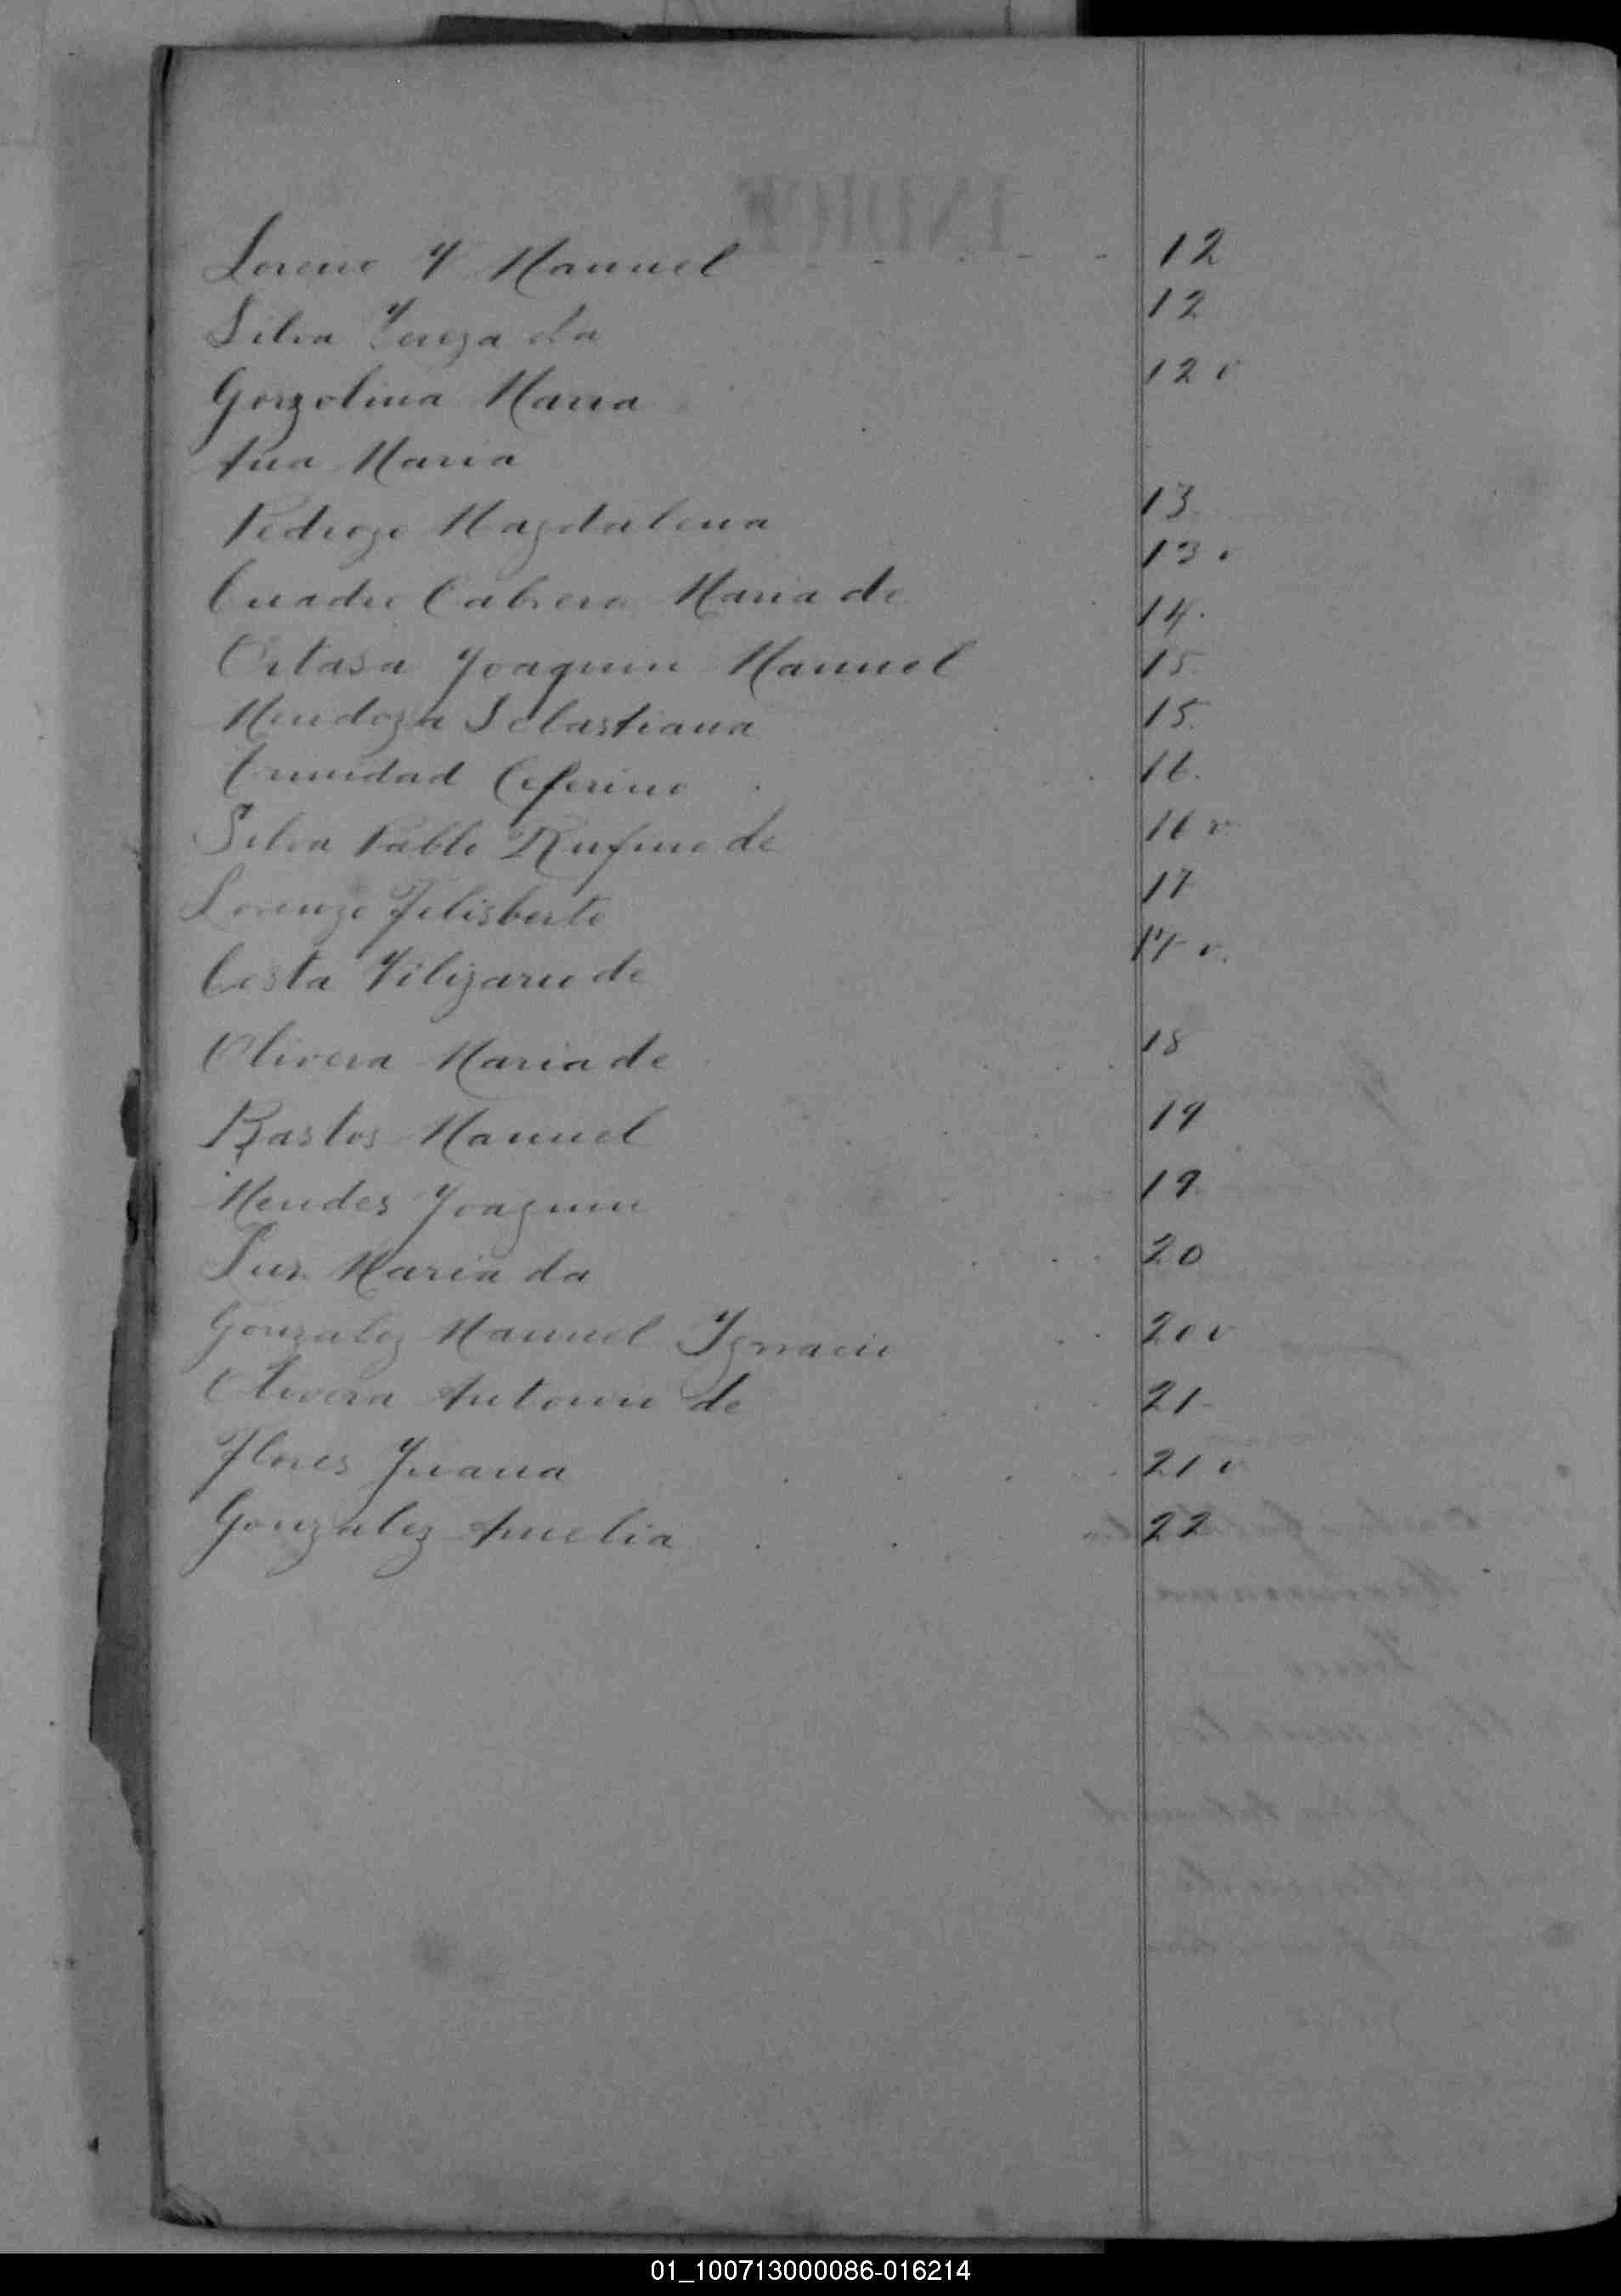 Loreno Y Manuel 12
Silva Tereza da 12
Gorzolina Maria 12 v
Ana Maria
Pedrozo Magdalena 13
Cuadro Cabrera Maria de 13 v
Ortasa Joaquin Manuel 14.
Mendoza Sebastiana 15.
Trinidad Ceferino 15.
Silva Pablo Rufino de 16.
Lorenzo Felisberto 16 v
Costa Filizario de 17
17 v.
Olivera Maria de 18
Bastos Manuel 19
Mendes Joaquin 19
Luz Maria da 20
Gonzalez Manuel Ygnacio 20 v
Olivera Antonio de 21
Flores Juana 21 v
Gonzalez Amelia 22
01_100713000086-016214